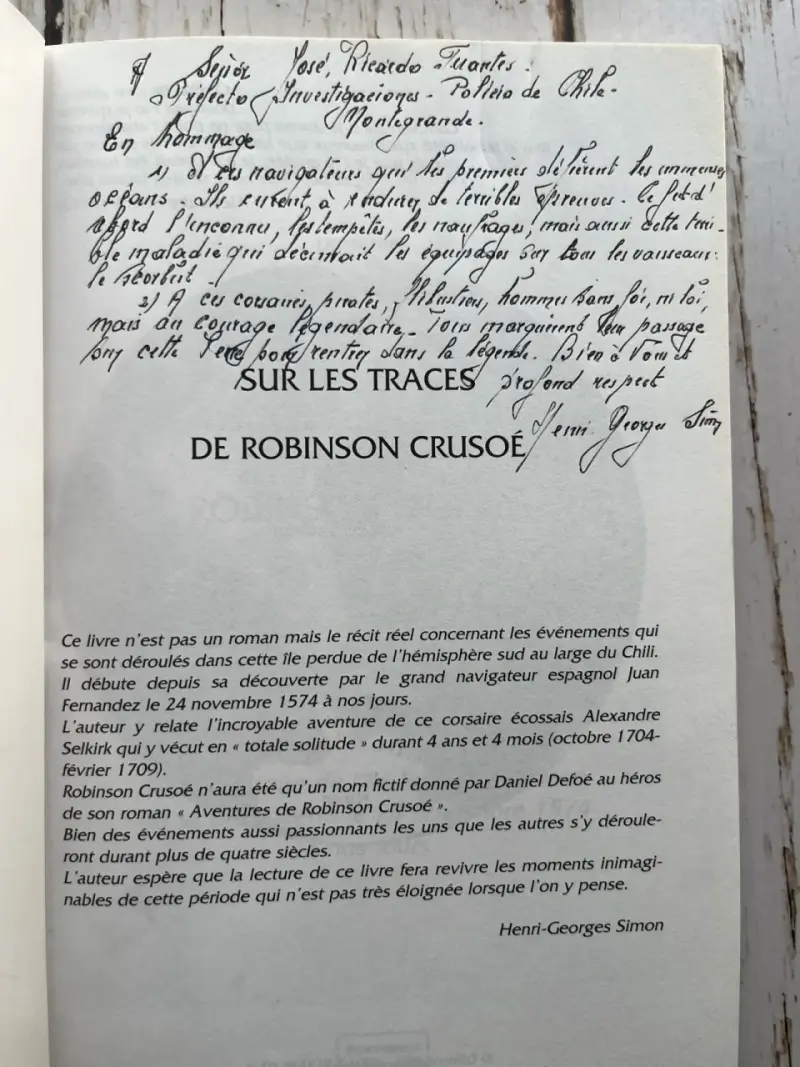 A Señor José, Ricardo Fuantes.
Prefecto Investigaciones - Policia de Chile -
Montegrande.
En hommage
1) à ces navigateurs qui les premiers défièrent les immenses
océans. Ils eurent à endurer de terribles épreuves. Ce fut d'
abord l'inconnu, les tempêtes, les naufrages, mais aussi cette terri-
ble maladie qui décimait les équipages sur tous les vaisseaux:
le scorbut.
2) A ces corsaires, pirates, flibustiers, hommes sans foi, ni loi,
mais au courage légendaire. Tous marquèrent leur passage
sur cette Terre pour rentrer dans la légende. Bien à Vous et
profond respect
Henri Georges Simon
SUR LES TRACES
DE ROBINSON CRUSOÉ
Ce livre n'est pas un roman mais le récit réel concernant les événements qui
se sont déroulés dans cette île perdue de l'hémisphère sud au large du Chili.
Il débute depuis sa découverte par le grand navigateur espagnol Juan
Fernandez le 24 novembre 1574 à nos jours.
L'auteur y relate l'incroyable aventure de ce corsaire écossais Alexandre
Selkirk qui y vécut en « totale solitude » durant 4 ans et 4 mois (octobre 1704-
février 1709).
Robinson Crusoé n'aura été qu'un nom fictif donné par Daniel Defoé au héros
de son roman « Aventures de Robinson Crusoé ».
Bien des événements aussi passionnants les uns que les autres s'y déroule-
ront durant plus de quatre siècles.
L'auteur espère que la lecture de ce livre fera revivre les moments inimagi-
nables de cette période qui n'est pas très éloignée lorsque l'on y pense.
Henri-Georges Simon